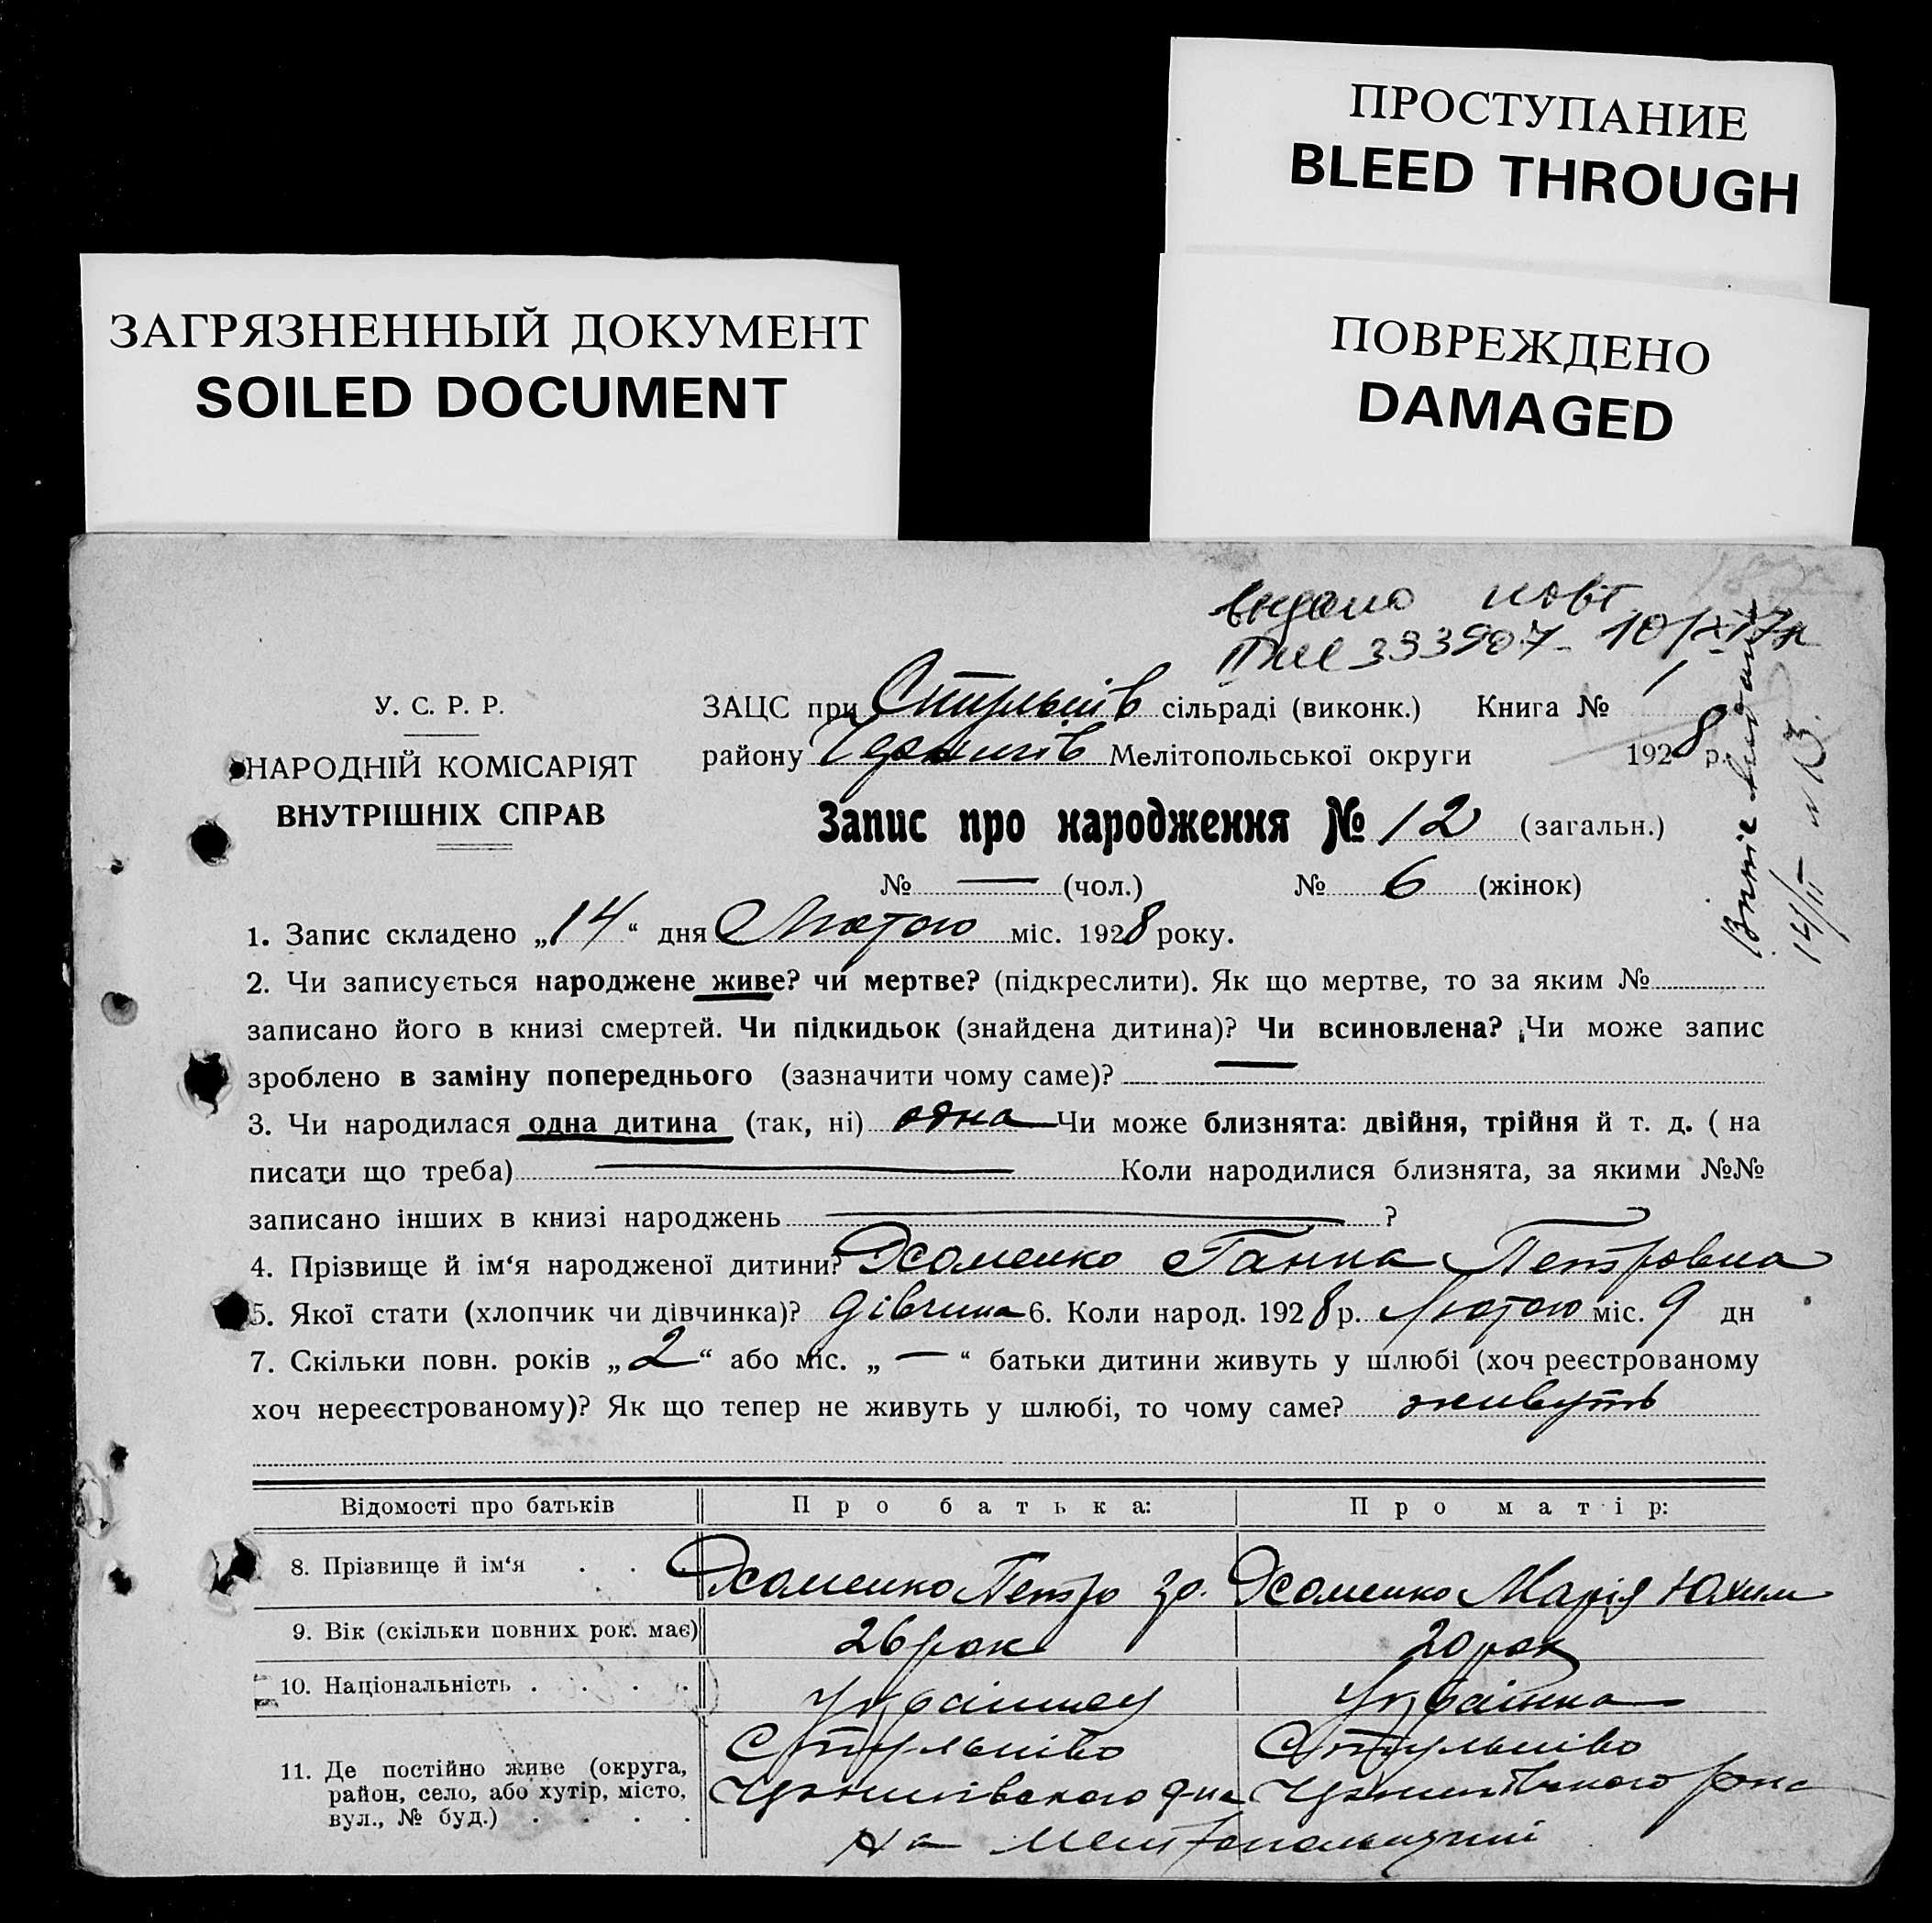 ПРОСТУПАНИЕ
BLEED THROUGH
ЗАГРЯЗНЕННЫЙ ДОКУМЕНТ
SOILED DOCUMENT
ПОВРЕЖДЕНО
DAMAGED
видано повт
393907
У. С. Р. Р.
НАРОДНІЙ КОМІСАРІЯТ
ВНУТРІШНІХ СПРАВ
ЗАЦС при сільраді (виконк.) Книга № 1
району Мелітопольської округи 1928 р.
Запис про народження № 12 (загальн.)
№ — (чол.) № 6 (жінок)
14/II
1. Запис складено „14“ дня Лютого міс. 1928 року.
2. Чи записується народжене живе? чи мертве? (підкреслити). Як що мертве, то за яким №
записано його в книзі смертей. Чи підкидьок (знайдена дитина)? Чи всиновлена? Чи може запис
зроблено в заміну попереднього (зазначити чому саме)? —
3. Чи народилася одна дитина (так, ні) одна Чи може близнята: двійня, трійня й т. д. ( на
писати що треба) — Коли народилися близнята, за якими №№
записано інших в книзі народжень — ?
4. Прізвище й ім‘я народженої дитини? Ганна Петровна
5. Якої стати (хлопчик чи дівчинка)? дівчина 6. Коли народ. 1928 р. Лютого міс. 9 дн
7. Скільки повн. років „2“ або міс. „—“ батьки дитини живуть у шлюбі (хоч реєстрованому
хоч нереєстрованому)? Як що тепер не живуть у шлюбі, то чому саме? живуть
Відомості про батьків Про батька: Про матір:
8. Прізвище й ім‘я . . . Петро Марія Юхим
9. Вік (скільки повних рок. має) 26 рок 20 рок
10. Національність . . . . Українец Українка
11. Де постійно живе (округа,
район, село, або хутір, місто,
вул., № буд.) . . . .